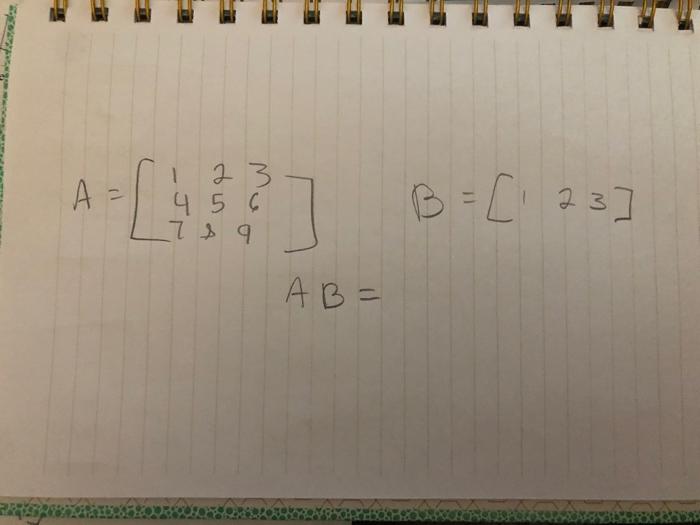 A = [1 2 3
4 5 6
7 8 9]
B = [1 2 3]
AB =